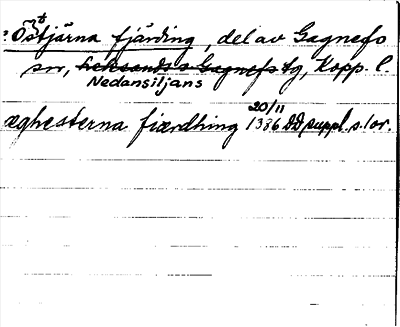 ? Östjärna fjärding, del av Gagnefs
sn, Leksands o Gagnefs tg, Kopp. l.
Nedansiljans
æghesterna fiærdhing 20/11 1386 DD suppl. s. 1 or.